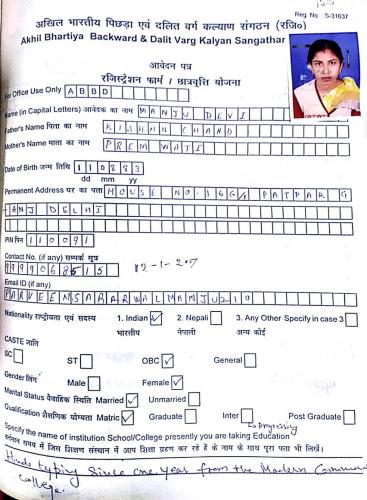 Reg. No : S-31637
अखिल भारतीय पिछड़ा एवं दलित वर्ग कल्याण संगठन (रजि०)
Akhil Bhartiya Backward & Dalit Varg Kalyan Sangathan
आवेदन पत्र
रजिस्ट्रेशन फार्म / छात्रवृत्ति योजना
For Office Use Only A B B D
Name (in Capital Letters) आवेदक का नाम MANJU DEVI
Father's Name पिता का नाम KISHAN CHAND
Mother's Name माता का नाम PREM WATI
Date of Birth जन्म तिथि 110883
dd mm yy
Permanent Address घर का पता HOUSE NO. 16G/1 PATPAR G
ANJ DELHI
PIN पिन 110091
Contact No. (if any) सम्पर्क सूत्र
9999068515
Email ID (if any)
Nationality राष्ट्रीयता एवं सदस्य 1. Indian ✓ 2. Nepali 3. Any Other Specify in case 3
भारतीय नेपाली अन्य कोई
CASTE जाति
SC ST OBC ✓ General
Gender लिंग Male Female ✓
Marital Status वैवाहिक स्थिति Married ✓ Unmarried
Qualification शैक्षणिक योग्यता Matric ✓ Graduate Inter Post Graduate
Specify the name of institution School/College presently you are taking Education
वर्तमान समय में जिस शिक्षण संस्थान में आप शिक्षा ग्रहण कर रहे हैं के नाम के साथ पूरा पता भी लिखें।
Hindi typing Since one year from the Modern
College.